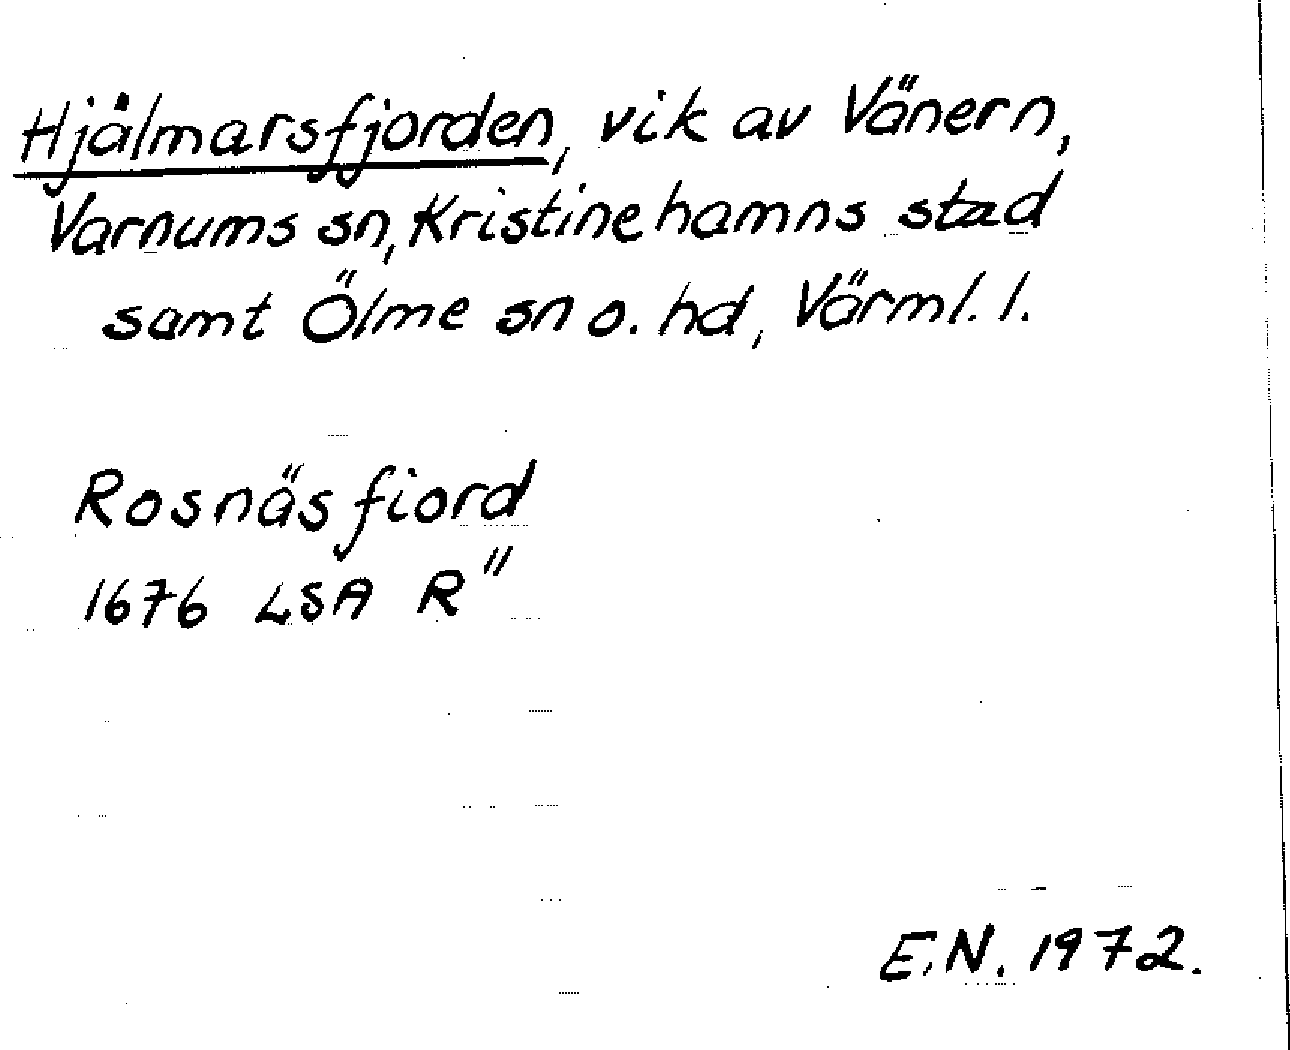 Hjälmarsfjorden, vik av Vänern,
Varnums sn, Kristinehamns stad
samt Ölme sn o. hd, Värml. l.
Rosnäs fiord
1676 LSA R"
E.N. 1972.